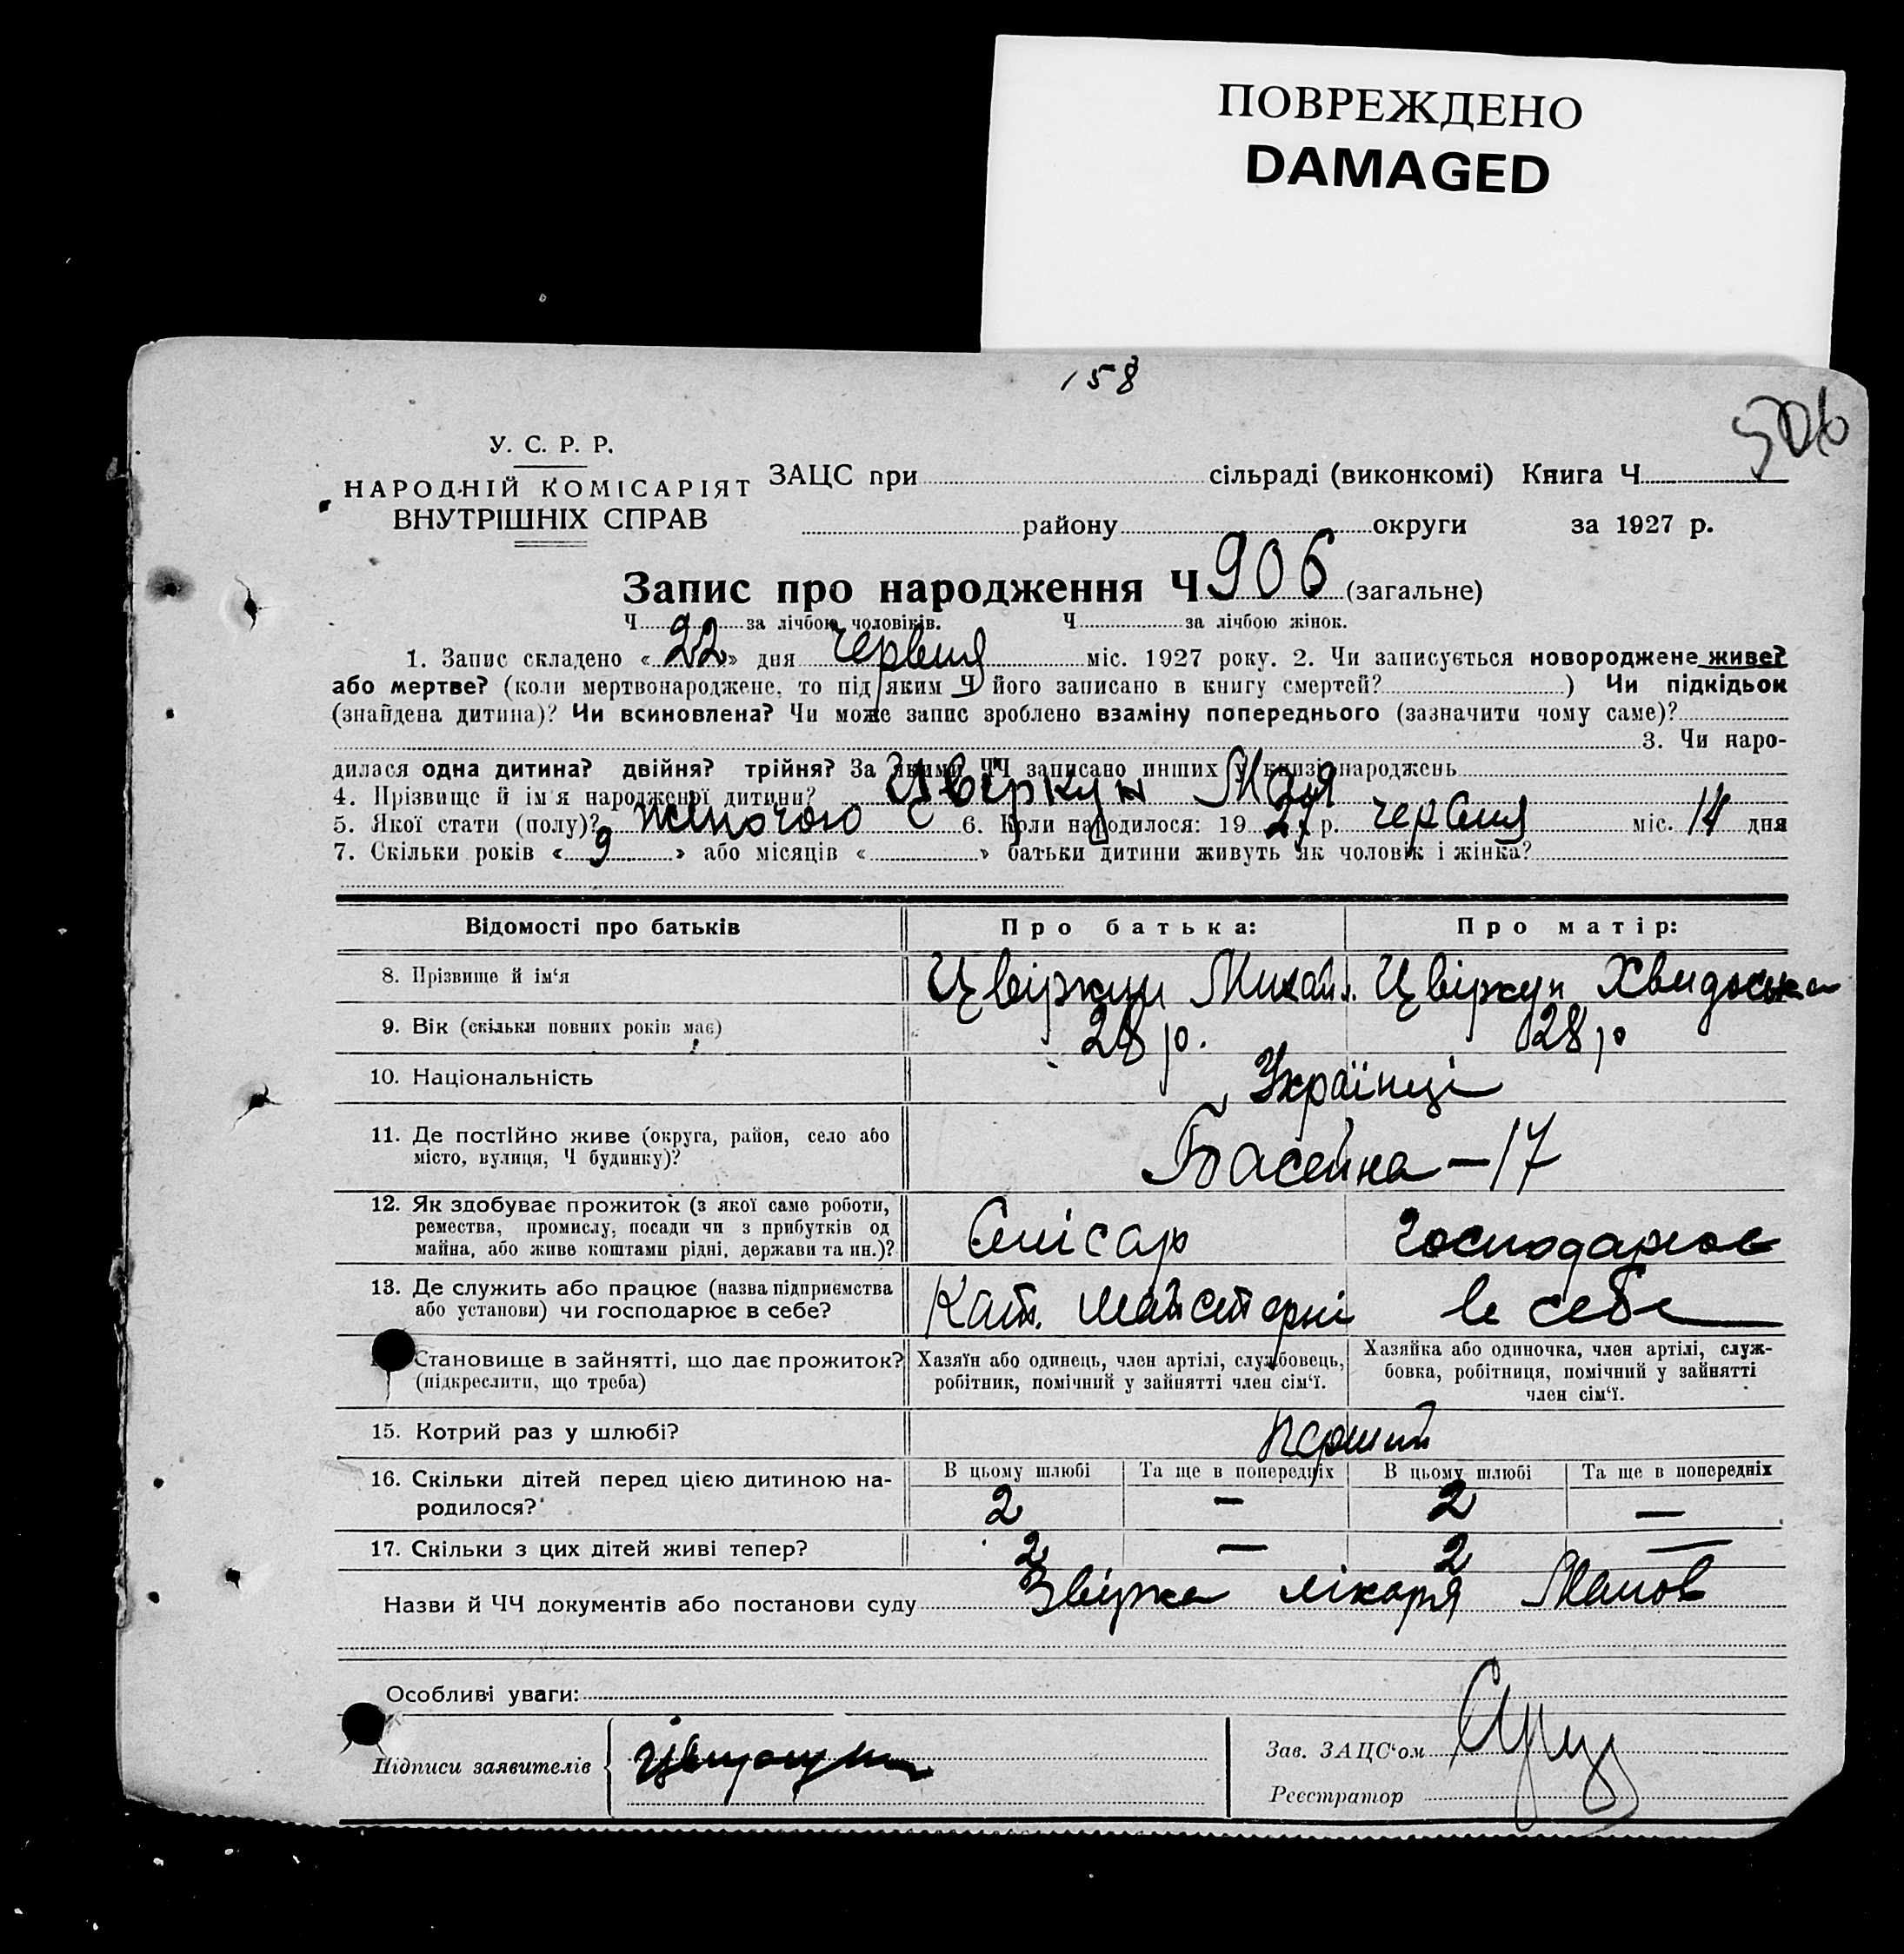 ПОВРЕЖДЕНО
DAMAGED
158
906
У. С. Р. Р.
НАРОДНІЙ КОМІСАРІЯТ
ВНУТРІШНІХ СПРАВ
ЗАЦС при сільраді (виконкомі) Книга Ч
району округи за 1927 р.
Запис про народження Ч 906 (загальне)
Ч за лічбою чоловіків. Ч за лічбою жінок.
1. Запис складено « 22 » дня червня міс. 1927 року. 2. Чи записується новороджене живе?
або мертве? (коли мертвонароджене, то під яким Ч його записано в книгу смертей? ) Чи підкідьок
(знайдена дитина)? Чи всиновлена? Чи може запис зроблено взаміну попереднього (зазначити чому саме)?
3. Чи наро-
дилася одна дитина? двійня? трійня? За якими ЧЧ записано инших у книзі народжень
4. Прізвище й ім'я народженої дитини? Цвіркун Мая
5. Якої стати (полу)? жіночою 6. Коли народилося: 19 27 р. червня міс. 14 дня
7. Скільки років « 9 » або місяців « » батьки дитини живуть як чоловік і жінка?
Відомості про батьків
Про батька:
Про матір:
8. Прізвище й ім'я
Цвіркун Михайл.
Цвіркун Хвидоська
9. Вік (скільки повних років має)
28 р.
28 р
10. Національність
Українці
11. Де постійно живе (округа, район, село або
місто, вулиця, Ч будинку)?
Басейна – 17
12. Як здобуває прожиток (з якої саме роботи,
ремества, промислу, посади чи з прибутків од
майна, або живе коштами рідні, держави та ин.)?
Слісар
Господарює
13. Де служить або працює (назва підприємства
або установи) чи господарює в себе?
Кат. майстерні
в себе
Становище в зайнятті, що дає прожиток?
(підкреслити, що треба)
Хазяїн або одинець, член артілі, службовець,
робітник, помічний у зайнятті член сім'ї.
Хазяйка або одиночка, член артілі, служ-
бовка, робітниця, помічний у зайнятті
член сім'ї.
15. Котрий раз у шлюбі?
перший
16. Скільки дітей перед цією дитиною на-
родилося?
В цьому шлюбі
Та ще в попередніх
В цьому шлюбі
Та ще в попередніх
2 – 2 –
17. Скільки з цих дітей живі тепер?
2 – 2 –
Назви й ЧЧ документів або постанови суду лікаря
Особливі уваги:
Підписи заявителів
Зав. ЗАЦС'ом
Реєстратор